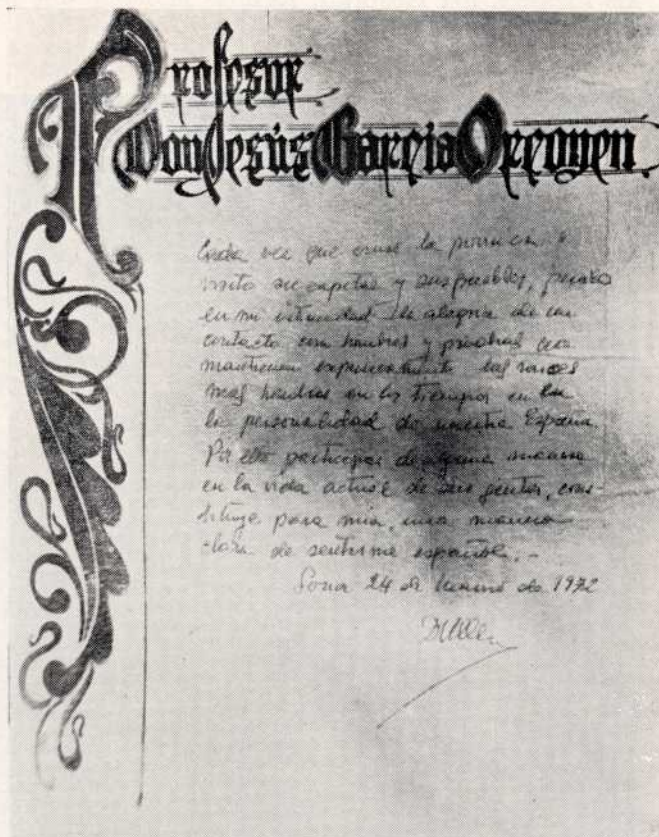 Profesor
Don Jesús García Orcoyen
Cada vez que cruzo la
visito su capital y sus pueblos,
en mi intimidad la alegría de un
contacto con hombres y que
mantienen las raíces
mas en los tiempos en
la personalidad de nuestra España.
Por ello participar de alguna manera
en la vida actual de sus gentes, cons-
tituye para mi, una manera
clara de sentirme español.-
Soria 24 de de 1972